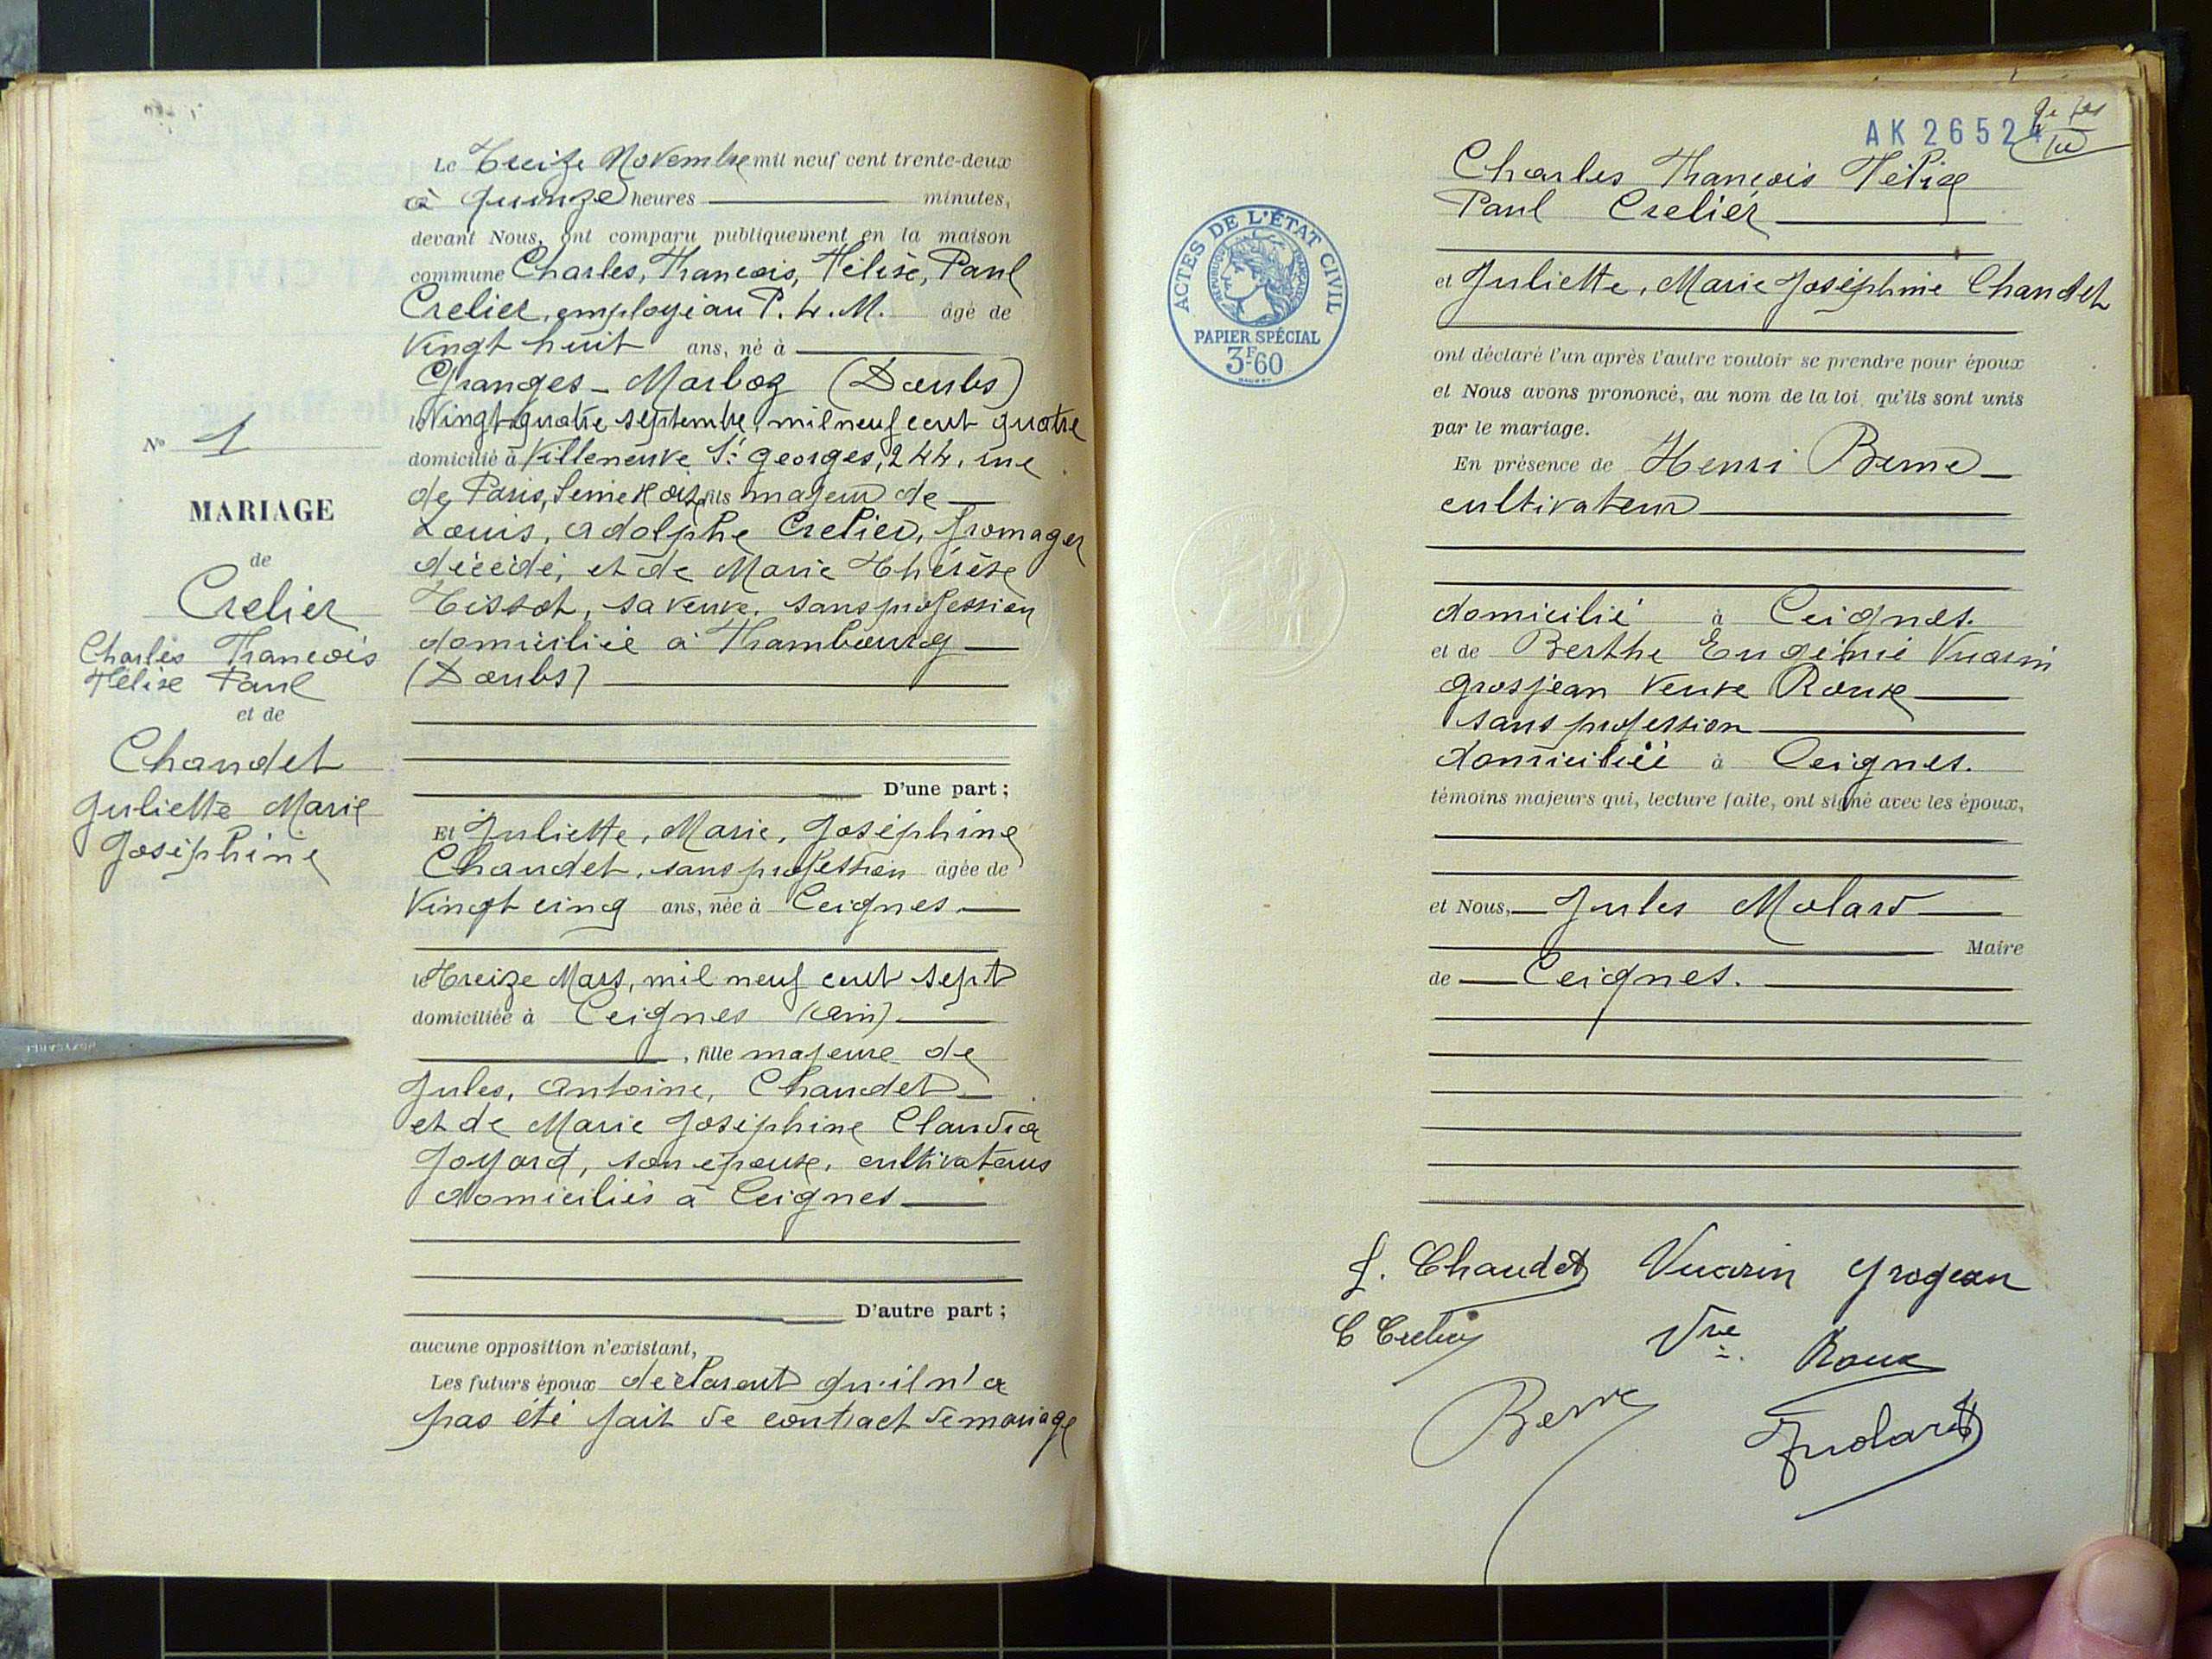 N° 1
MARIAGE
de
Crelier
Charles François
Félise Paul
et de
Chaudet
Juliette Marie
Joséphine
Le Treize Novembre mil neuf cent trente-deux
à quinze heures minutes,
devant Nous, ont comparu publiquement en la maison
commune Charles, François, Félise, Paul
Crelier, employé au P. L. M. âgé de
Vingt huit ans, né à
Granges-Marboz (Doubs)
le Vingt quatre septembre mil neuf cent quatre
domicilié à Villeneuve St Georges, 244, rue
de Paris, Seine et Oise, fils majeur de
Louis, Adolphe Crelier, fromager
décédé, et de Marie Thérèse
Tissot, sa veuve, sans profession
domiciliée à Frambourg
(Doubs)
D'une part ;
Et Juliette, Marie, Joséphine
Chaudet, sans profession âgée de
Vingt cinq ans, née à Ceignes
le Treize Mars, mil neuf cent sept
domiciliée à Ceignes (Ain)
, fille majeure de
Jules, Antoine, Chaudet
et de Marie Joséphine Claudia
Joyard, son épouse, cultivateurs
domiciliés à Ceignes
D'autre part ;
aucune opposition n'existant,
Les futurs époux déclarent qu'il n'a
pas été fait de contract de mariage
AK 26524
ACTES DE L'ÉTAT CIVIL
RÉPUBLIQUE FRANÇAISE
PAPIER SPÉCIAL
3F60
Charles François Félix
Paul Crelier
et Juliette, Marie Joséphine Chaudet
ont déclaré l'un après l'autre vouloir se prendre pour époux
et Nous avons prononcé, au nom de la loi, qu'ils sont unis
par le mariage.
En présence de Henri Berne
cultivateur
domicilié à Ceignes.
et de Berthe Eugénie Vuarin
Grosjean Veuve Roux
sans profession
domiciliée à Ceignes.
témoins majeurs qui, lecture faite, ont signé avec les époux,
et Nous, Jules Molard
Maire
de Ceignes.
J. Chaudet Vuarin Grogean
C Crelier Vve Roux
Berne
JMolard